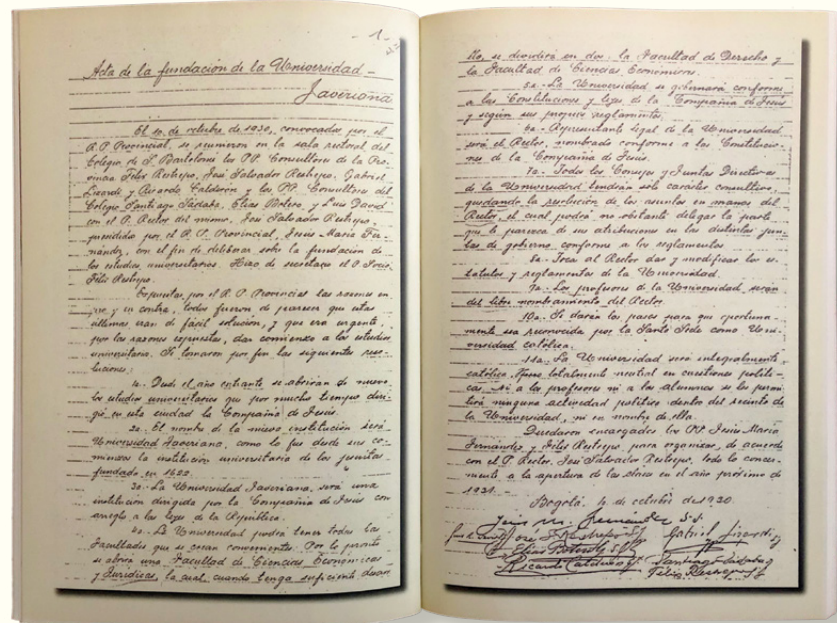 - 1 -
Acta de la fundación de la Universidad -
Javeriana
El 1o. de octubre de 1930, convocados por el
R. P. Provincial, se reunieron en la sala rectoral del
Colegio de S. Bartolomé los PP. Consultores de la Pro-
vincia Félix Restrepo, José Salvador Restrepo, Gabriel
Lizardi y Ricardo Calderón y los PP. Consultores del
Colegio Santiago Sádaba, Elías Botero, y Luis David
con el P. Rector del mismo, José Salvador Restrepo,
presididos por el R. P. Provincial, Jesús María Fer-
nández, con el fin de deliberar sobre la fundación de
los estudios universitarios. Hizo de secretario el P. Socio
Félix Restrepo.
Expuestas por el R. P. Provincial las razones en
pro y en contra, todos fueron de parecer que estas
últimas eran de fácil solución, y que era urgente,
por las razones expuestas, dar comienzo a los estudios
universitarios. Se tomaron por fin las siguientes reso-
luciones:
1a. Desde el año entrante se abrirán de nuevo
los estudios universitarios que por mucho tiempo diri-
gió en esta ciudad la Compañía de Jesús.
2a. El nombre de la nueva institución será
Universidad Javeriana, como lo fue desde sus co-
mienzos la institución universitaria de los jesuitas
fundada en 1622.
3a. La Universidad Javeriana, será una
institución dirigida por la Compañía de Jesús con
arreglo a las leyes de la República.
4a. La Universidad podrá tener todas las
Facultades que se crean convenientes. Por lo pronto
se abrirá una Facultad de Ciencias Económicas
y Jurídicas, la cual, cuando tenga suficiente desarro-
llo, se dividirá en dos: la Facultad de Derecho y
la Facultad de Ciencias Económicas.
5a. - La Universidad se gobernará conforme
a las Constituciones y leyes de la Compañía de Jesús
y según sus propios reglamentos.
6a - Representante legal de la Universidad
será el Rector, nombrado conforme a las Constitucio-
nes de la Compañía de Jesús.
7a - Todos los Consejos y Juntas Directivas
de la Universidad tendrán solo carácter consultivo,
quedando la resolución de los asuntos en manos del
Rector, el cual podrá no obstante delegar la parte
que le parezca de sus atribuciones en las distintas jun-
tas de gobierno conforme a los reglamentos.
8a - Toca al Rector dar y modificar los es-
tatutos y reglamentos de la Universidad.
9a - Los profesores de la Universidad serán
del libre nombramiento del Rector.
10a. Se darán los pasos para que oportuna-
mente sea reconocida por la Santa Sede como Uni-
versidad católica.
11a. La Universidad será integralmente
católica, pero totalmente neutral en cuestiones políti-
cas. Ni a los profesores ni a los alumnos se les permi-
tirá ninguna actividad política dentro del recinto de
la Universidad, ni en nombre de ella.
Quedaron encargados los PP. Jesús María
Fernández y Félix Restrepo para organizar, de acuerdo
con el P. Rector José Salvador Restrepo, todo lo concer-
niente a la apertura de las clases en el año próximo de
1931. -
Bogotá, 1o. de octubre de 1930.
Jesús M. Fernández S.J.
José S. Restrepo S.J. Gabriel Lizardi S.J.
Elías Botero S.J.
Ricardo Calderón S.J. Santiago Sádaba S.J.
Félix Restrepo S.J.